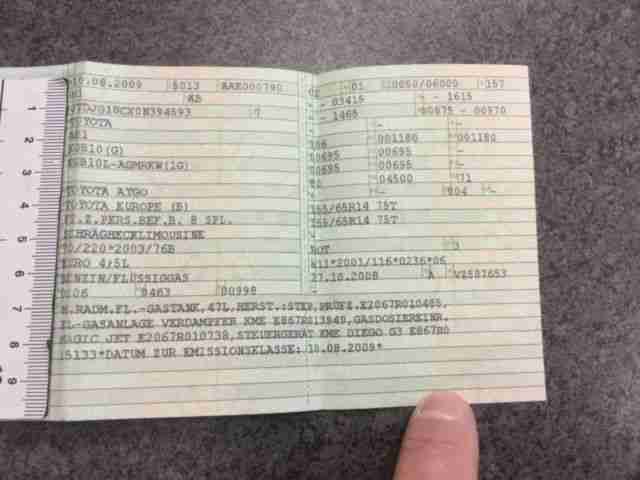 10.08.2009 5013 AAE000790
AB
7
TOYOTA
AB1
KGB10(G)
KGB10L-AGMRKW(1G)
TOYOTA AYGO
TOYOTA EUROPE (B)
FZ.Z.PERS.BEF.B. 8 SPL.
SCHRÄGHECKLIMOUSINE
70/220*2003/76B
EURO 4;5L
BENZIN/FLÜSSIGGAS
0006 0463 00998
01 0050/06000 157
03415 - 1615
- 1465 00875 - 00970
- -
001180 001180
00695 00695 -
00695 00695 -
04500 J1
- 004 -
155/65R14 75T
155/65R14 75T
ROT 3
E11*2001/116*0236*06
27.10.2008 A
M.RADM.FL.-GASTANK,47L,HERST.:STEP,PRÜFZ.E2067R010405,
FL-GASANLAGE VERDAMPFER KME E867R013949,GASDOSIEREINR.
MAGIC JET E2067R010738,STEUERGERÄT KME DIEGO G3 E867R0
15133*DATUM ZUR EMISSIONSKLASSE: 10.08.2009*
1
2
3
4
5
6
7
8
9